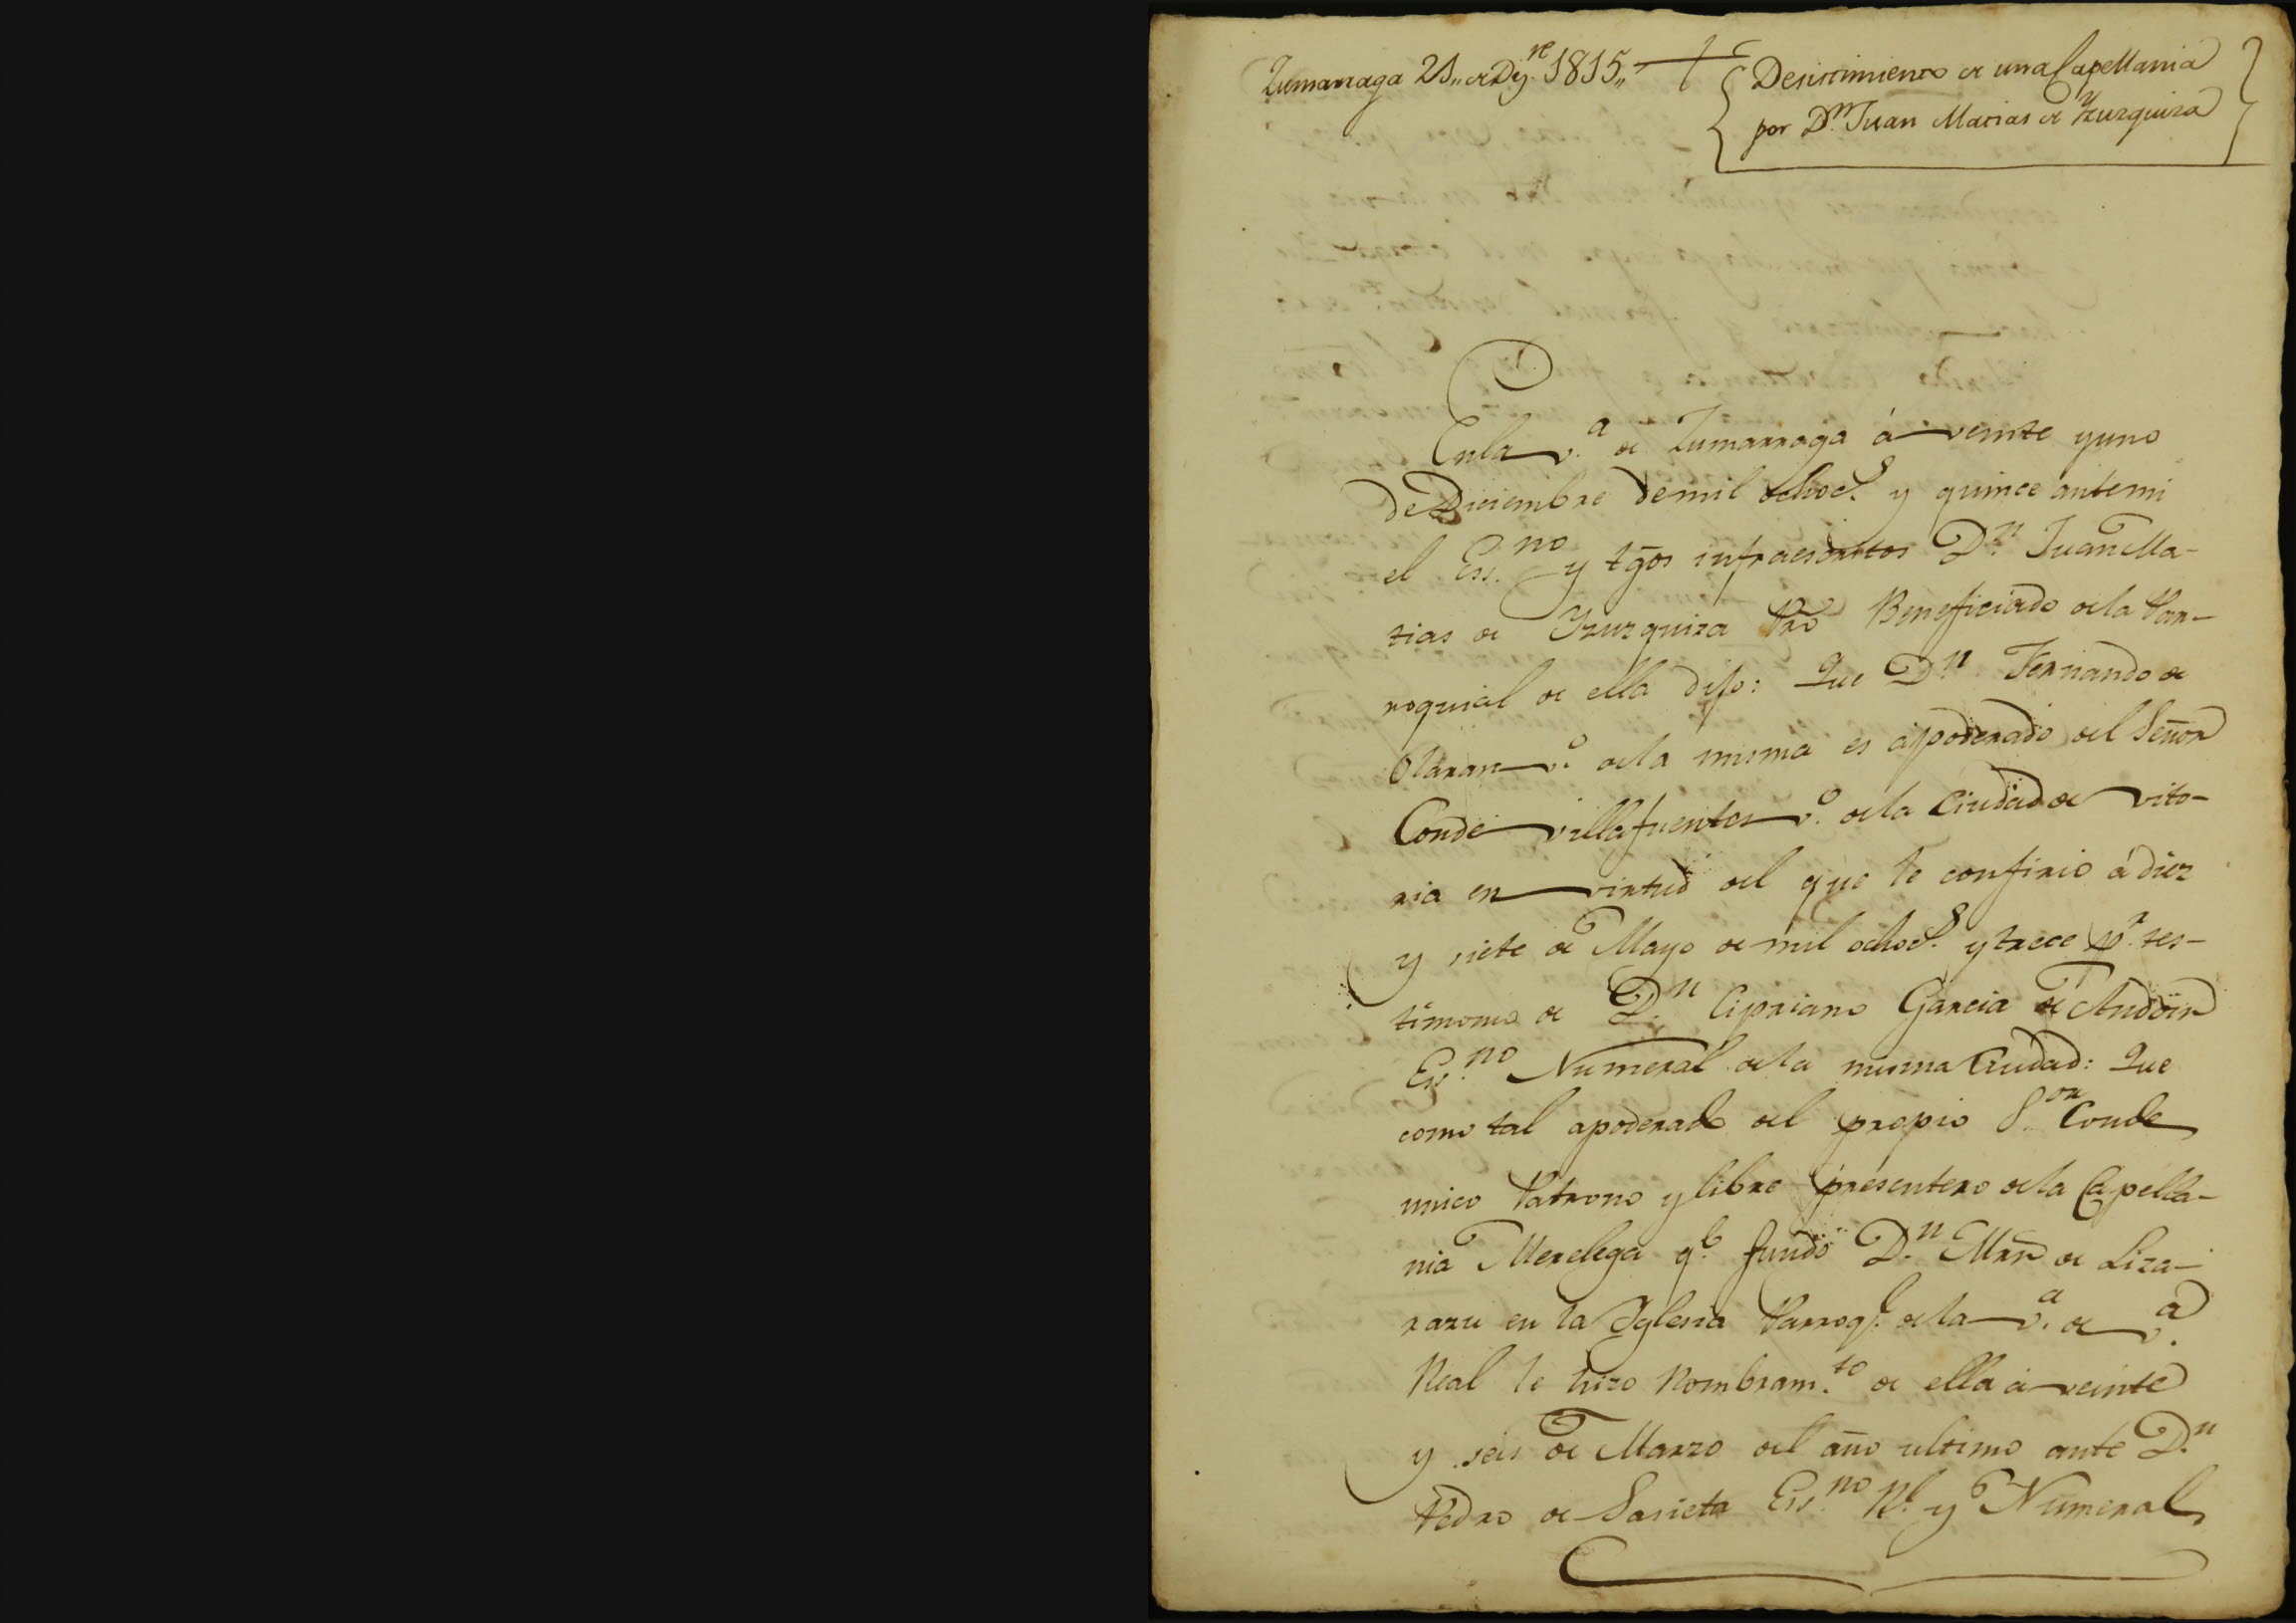 Zumarraga 21,, de Dz.re 1815,,
Desistimiento de una Capellania
por D.n Juan Matias de Yzurquiza
En la v.a de Zumarraga á veinte y uno
de Diciembre de mil ochocs. y quince ante mi
el Ess.no y tgos infraescritos D.n Juan Ma-
tias de Yzurquiza Pro Beneficiado de la Par-
roquial de ella dijo: Que D.n Fernando de
Olaran v.o de la misma es apoderado del Señor
Conde villafuertes v.o de la Ciudad de vito-
ria en virtud del que le confirio á diez
y siete de Mayo de mil ochocs. y trece p.r tes-
timonio de D.n Cipriano Garcia de Andoin
Ess.no Numeral de la misma Ciudad: Que
como tal apoderado del propio S.or Conde
unico Patrono y libre presentero de la Capella-
nia Merelega q.e fundó D.n Mrn de Liza-
razu en la Yglesia Parroq.l de la v.a de v.a
Real le hizo Nombram.to de ella á veinte
y seis de Marzo del año ultimo ante D.n
Pedro de Sasieta Ess.no R.l y Numeral